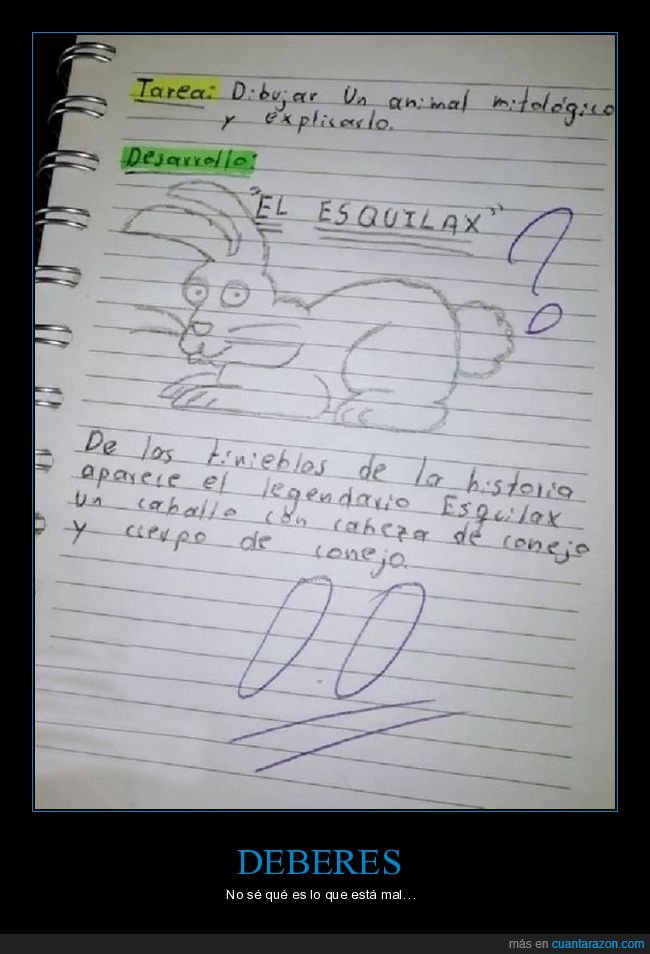 Tarea: Dibujar Un animal mitológico
y explicarlo.
Desarrollo:
"EL ESQUILAX"
?
De las tinieblas de la historia
aparece el legendario Esquilax
un caballo con cabeza de conejo
y cuerpo de conejo.
0.0
DEBERES
No sé qué es lo que está mal...
más en cuantarazon.com